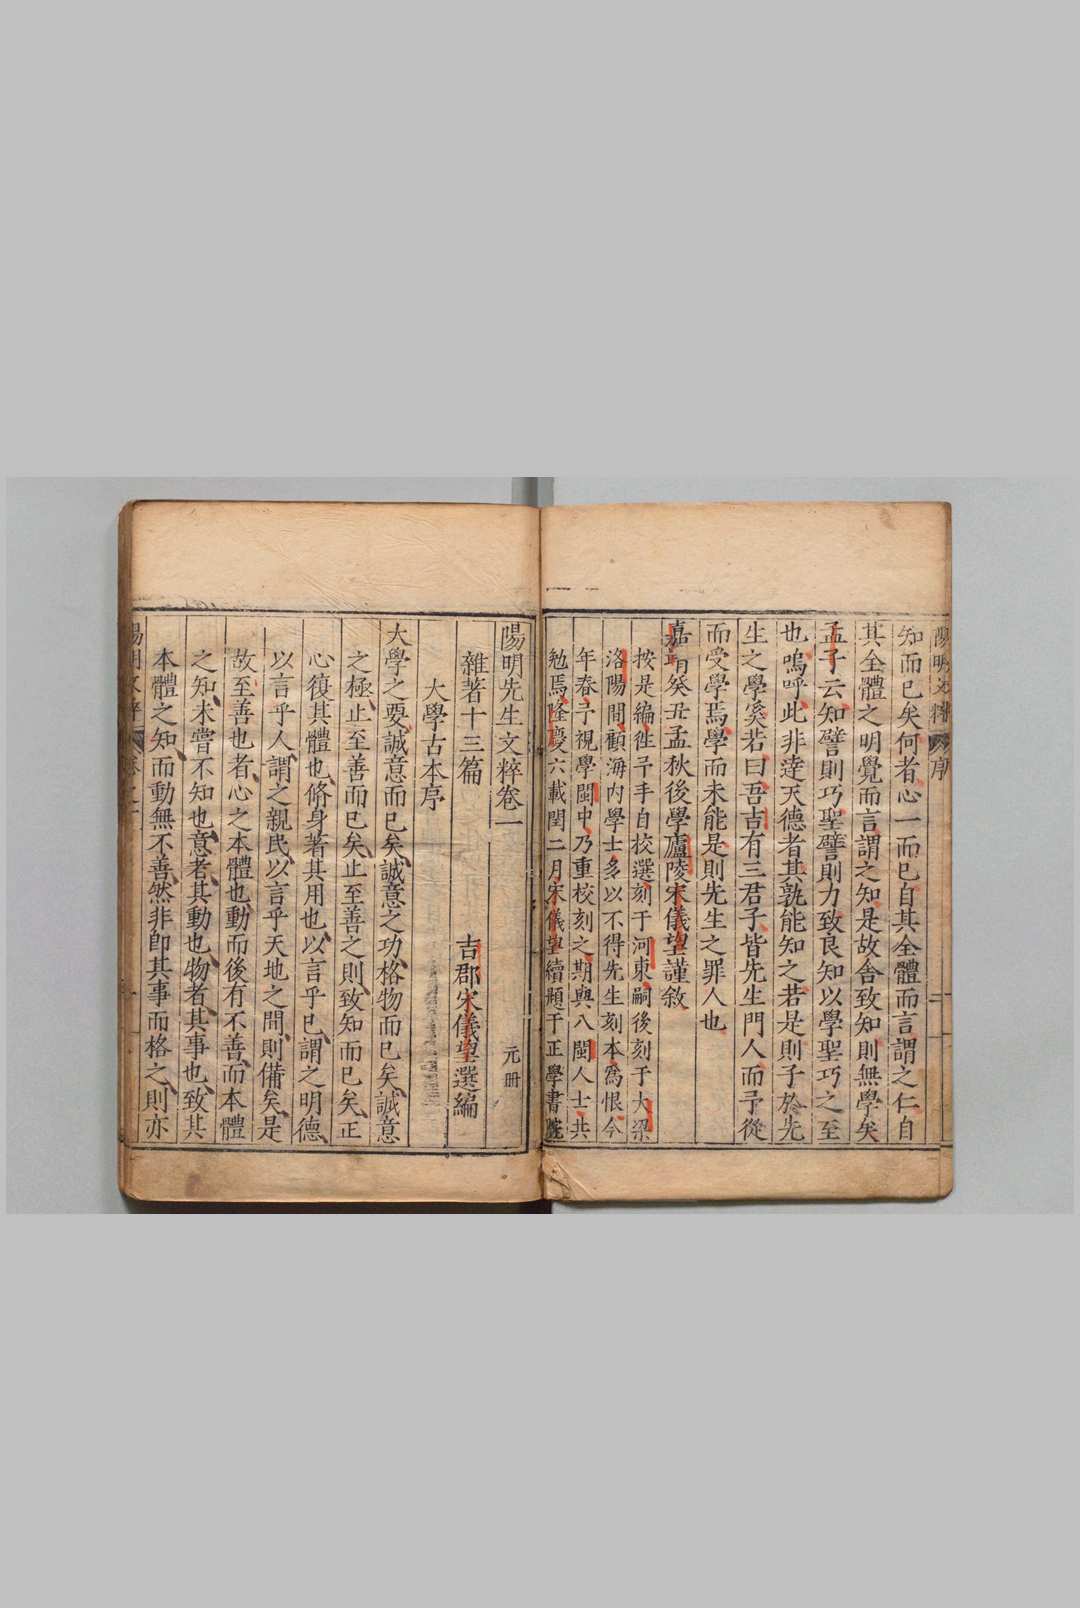 陽明文粹 序
知而已矣何者心一而已自其全體而言謂之仁自
其全體之明覺而言謂之知是故舍致知則無學矣
孟子云知譬則巧聖譬則力致良知以學聖巧之至
也嗚呼此非達天德者其孰能知之若是則予於先
生之學奚若曰吾吉有三君子皆先生門人而予從
而受學焉學而未能是則先生之罪人也
嘉靖癸丑孟秋後學廬陵宋儀望謹敘
按是編徃予手自校選刻于河東嗣後刻于大梁
洛陽間顧海內學士多以不得先生刻本爲恨今
年春予視學閩中乃重校刻之期與八閩人士共
勉焉隆慶六載閏二月宋儀望續題于正學書院
陽明先生文粹卷一
雜著十三篇
吉郡宋儀望選編
元冊
大學古本序
大學之要誠意而已矣誠意之功格物而已矣誠意
之極止至善而已矣止至善之則致知而已矣正
心復其體也脩身著其用也以言乎已謂之明德
以言乎人謂之親民以言乎天地之間則備矣是
故至善也者心之本體也動而後有不善而本體
之知未嘗不知也意者其動也物者其事也致其
本體之知而動無不善然非卽其事而格之則亦
陽明文粹 卷之一